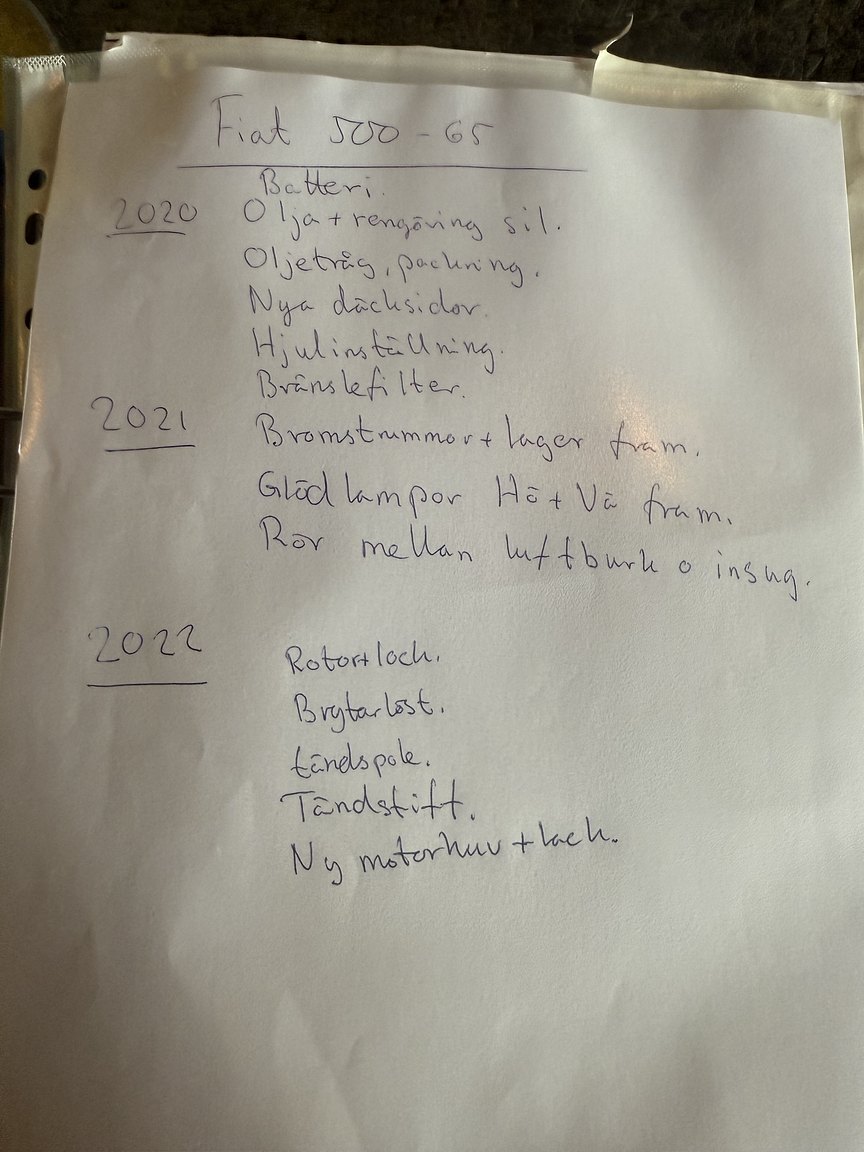 Fiat 500 - 65
Batteri.
2020 Olja + rengöring sil.
Oljetråg, packning.
Nya däcksidor.
Hjulinställning.
Bränslefilter.
2021 Bromstrummor + lager fram.
Glödlampor Hö + Vä fram.
Rör mellan luftburk o insug.
2022 Rotor+lock.
Brytarlöst.
tändspole.
Tändstift.
Ny motorhuv + lack.